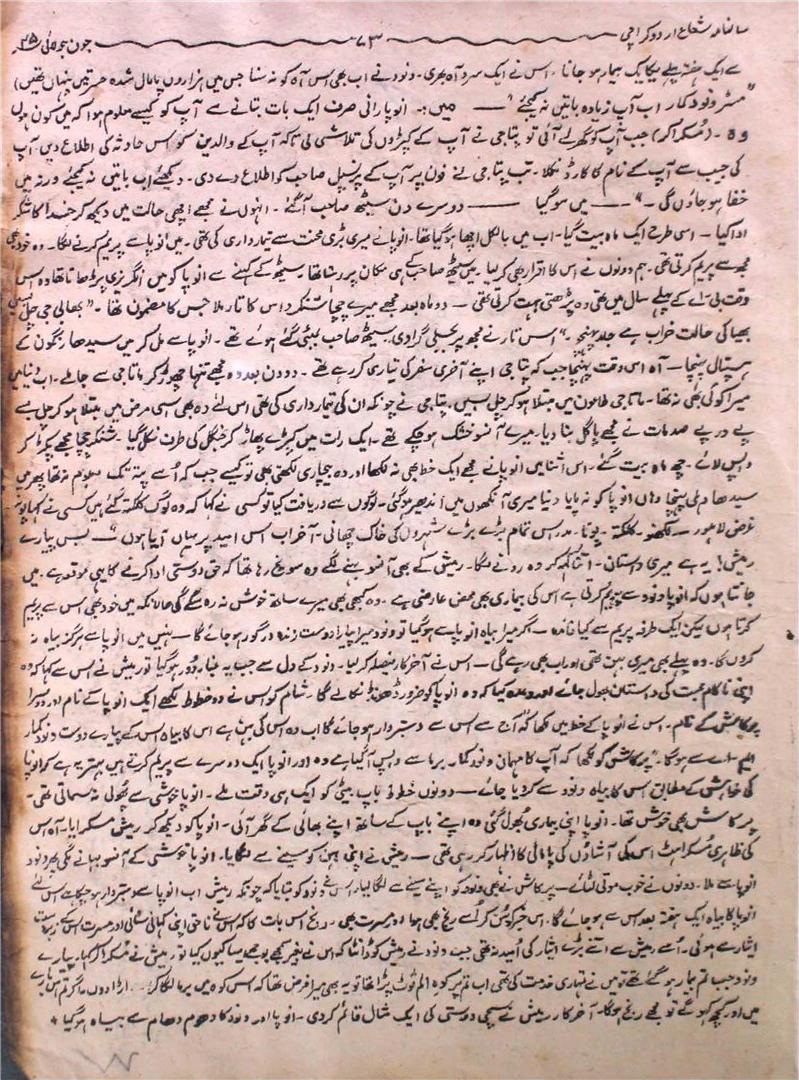 سالنامہ شعاع اردو کراچی ۷۳ جون جولائی ۳۵ء
سے ایک ہفتہ پہلے یکایک بیمار ہو جانا۔ اس نے ایک سرد آہ بھری۔ ونود نے اب بھی اس آہ کو نہ سنا جس میں ہزاروں پامال شدہ حسرتیں پنہاں تھیں)
"مسٹر ونود کمار اب آپ زیادہ باتیں نہ کیجئے" —— میں :۔ انوپا رانی صرف ایک بات بتانے سے آپ کو کیسے معلوم ہوا کہ میں کون ہوں
وہ ۔ (مسکرا کر) جب آپ کو گھر لے آئی تو پتاجی نے آپ کے کپڑوں کی تلاشی لی تاکہ آپ کے والدین کو اس حادثہ کی اطلاع دیں آپ
کی جیب سے آپ کے نام کا کارڈ نکلا۔ تب پتاجی نے فون پر آپ کے پرنسپل صاحب کو اطلاع دے دی۔ دیکھئے اب باتیں نہ کیجئے ورنہ میں
خفا ہو جاؤں گی۔" —— میں سو گیا —— دوسرے دن سیٹھ صاحب آگئے۔ انہوں نے مجھے اچھی حالت میں دیکھ کر خدا کا شکر
ادا کیا۔ اسی طرح ایک ماہ بیت گیا۔ اب میں بالکل اچھا ہو گیا تھا۔ انوپا نے میری بڑی محنت سے تیمار داری کی تھی۔ میں انوپا سے پریم کرنے لگا۔ وہ خود بھی
مجھ سے پریم کرتی تھی۔ ہم دونوں نے اس کا اقرار بھی کر لیا۔ میں سیٹھ صاحب کے ہی مکان پر رہتا تھا سیٹھ کے کہنے سے انوپا کو میں انگریزی پڑھاتا تھا وہ اس
وقت بی۔اے کے پہلے سال میں تھی وہ پڑھتی بہت کرتی تھی — دو ماہ بعد مجھے میرے چچا شنکر داس کا تار ملا جس کا مضمون تھا۔ "بھابی جی چل بسیں
بھیا کی حالت خراب ہے جلد پہنچو۔" اس تار نے مجھ پر بجلی گرا دی سیٹھ صاحب بمبئی گئے ہوئے تھے۔ انوپا سے مل کر میں سیدھا رنگون کے
ہسپتال پہنچا — آہ اس وقت پہنچا جب کہ پتا جی اپنے آخری سفر کی تیاری کر رہے تھے۔ دو دن بعد وہ مجھے تنہا چھوڑ کر ماتاجی سے جا ملے۔ اب دنیا میں
میرا کوئی بھی نہ تھا۔ ماتاجی طاعون میں مبتلا ہو کر چل بسیں۔ پتاجی نے چونکہ ان کی تیمارداری کی تھی اس لئے وہ بھی اسی مرض میں مبتلا ہو کر چل بسے
پے در پے صدمات نے مجھے پاگل بنا دیا۔ میرے آنسو خشک ہو چکے تھے۔ ایک رات میں کپڑے پھاڑ کر جنگل کی طرف نکل گیا۔ شنکر چچا مجھے پکڑ کر
واپس لائے۔ چھ ماہ بیت گئے۔ اس اثنا میں انوپا نے مجھے ایک خط بھی نہ لکھا اور وہ بیچاری لکھتی بھی تو کیسے جب کہ اُسے پتہ تک معلوم نہ تھا پھر میں
سیدھا دلی پہنچا وہاں انوپا کو نہ پایا دنیا میری آنکھوں میں اندھیر ہو گئی۔ لوگوں سے دریافت کیا تو کسی نے کہا کہ وہ لوگ کلکتہ گئے ہیں کسی نے کہا پونہ
غرض لاہور۔ لکھنؤ۔ کلکتہ۔ پونا۔ مدراس تمام بڑے بڑے شہروں کی خاک چھانی۔ آخر اب اس امید پر یہاں آیا ہوں" — بس پیارے
رمیش! یہ ہے میری داستان۔ اتنا کہہ کر وہ رونے لگا۔ رمیش کے بھی آنسو بہنے لگے وہ سوچ رہا تھا کہ حق دوستی ادا کرنے کا یہی موقعہ ہے۔ میں
جانتا ہوں کہ انوپا ونود سے پریم کرتی ہے اس کی بیماری بھی محض عارضی ہے۔ وہ کبھی بھی میرے ساتھ خوش نہ رہ سکے گی حالانکہ میں خود بھی اس سے پریم
کرتا ہوں لیکن ایک طرفہ پریم سے کیا فائدہ — اگر میرا بیاہ انوپا سے ہو گیا تو ونود میرا پیارا دوست زندہ درگور ہو جائے گا — نہیں میں انوپا سے ہرگز بیاہ نہ
کروں گا۔ وہ پہلے بھی میری بہن تھی اور اب بھی رہے گی — اس نے آخر کار فیصلہ کر لیا۔ ونود کے دل سے جب یہ غبار دور ہو گیا تو رمیش نے اس سے کہا کہ وہ
اپنی ناکام محبت کی داستان بھول جائے اور وعدہ کیا کہ وہ انوپا کو ضرور ڈھونڈ نکالے گا۔ شام کو اس نے دو خطوط لکھے ایک انوپا کے نام اور دوسرا
پرکاش کے نام۔ اس نے انوپا کے خط میں لکھا کہ آج سے اس سے دستبردار ہو جائے گا اب وہ اس کی بہن ہے اس کا بیاہ اس کے پیارے دوست ونود کمار
ایم۔اے سے ہو گا۔ پرکاش کو لکھا کہ آپ کا مہمان ونود کمار برما سے واپس آگیا ہے وہ اور انوپا ایک دوسرے سے پریم کرتے ہیں بہتر یہ ہے کہ انوپا
کی خواہش کے مطابق اس کا بیاہ ونود سے کر دیا جائے — دونوں خطوط باپ بیٹی کو ایک ہی وقت ملے۔ انوپا خوشی سے پھولی نہ سماتی تھی۔
پرکاش بھی خوش تھا۔ انوپا اپنی بیماری بھول گئی وہ اپنے باپ کے ساتھ اپنے بھائی کے گھر آئی۔ انوپا کو دیکھ کر رمیش مسکرایا۔ آہ اس
کی ظاہری مسکراہٹ اس کی آشاؤں کی پامالی کا اظہار کر رہی تھی — رمیش نے اپنی بہن کو سینے سے لگا لیا۔ انوپا خوشی کے آنسو بہانے لگی پھر ونود
انوپا سے ملا۔ دونوں نے خوب موتی لٹائے۔ پرکاش نے بھی ونود کو اپنے سینے سے لگا لیا۔ اس نے ونود کو بتایا کہ چونکہ رمیش اب انوپا سے دستبردار ہو چکا ہے اس لئے
انوپا کا بیاہ ایک ہفتہ بعد اس سے ہو جائے گا۔ اس خبر کو سن کر اُسے رنج بھی ہوا اور مسرت بھی۔ رنج اس بات کا کہ اس نے ناحق اپنی کہانی سنائی اور مسرت اس کے زبردست
ایثار سے ہوئی۔ اُسے رمیش سے اتنے بڑے ایثار کی اُمید نہ تھی جب ونود نے رمیش کو ڈانٹا کہ اس نے بغیر مجھے پوچھے ایسا کیوں کیا تو رمیش نے مسکرا کر کہا۔ پیارے
ونود جب تم بیمار ہو گئے تھے تو میں نے تمہاری خدمت کی تھی اب تم پر کوہِ الم ٹوٹ پڑا تھا تو یہ بھی میرا فرض تھا کہ اس کوہ میں برما لگا کر اڑا دوں مگر تم اس بارے
میں اور کچھ کہو گے تو مجھے رنج ہو گا۔ آخر کار رمیش نے سچی دوستی کی ایک مثال قائم کر دی۔ انوپا اور ونود کا دھوم دھام سے بیاہ ہو گیا ٭